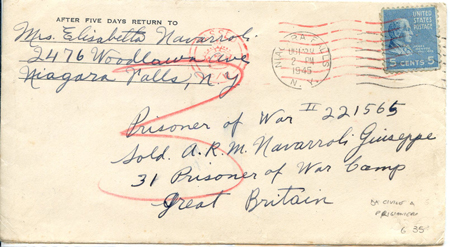 AFTER FIVE DAYS RETURN TO
Mrs. Elisabetta Navarroli
2476 Woodlawn Ave
Niagara Falls, N.Y.
NIAGARA FALLS
2 PM
1945
N.Y.
UNITED STATES POSTAGE
5 CENTS 5
Prisoner of War II 221565
Sold. A.R.M. Navarroli Giuseppe
31 Prisoner of War Camp
Great Britain
DA CIVILE A
PRIGIONIERO
6 35